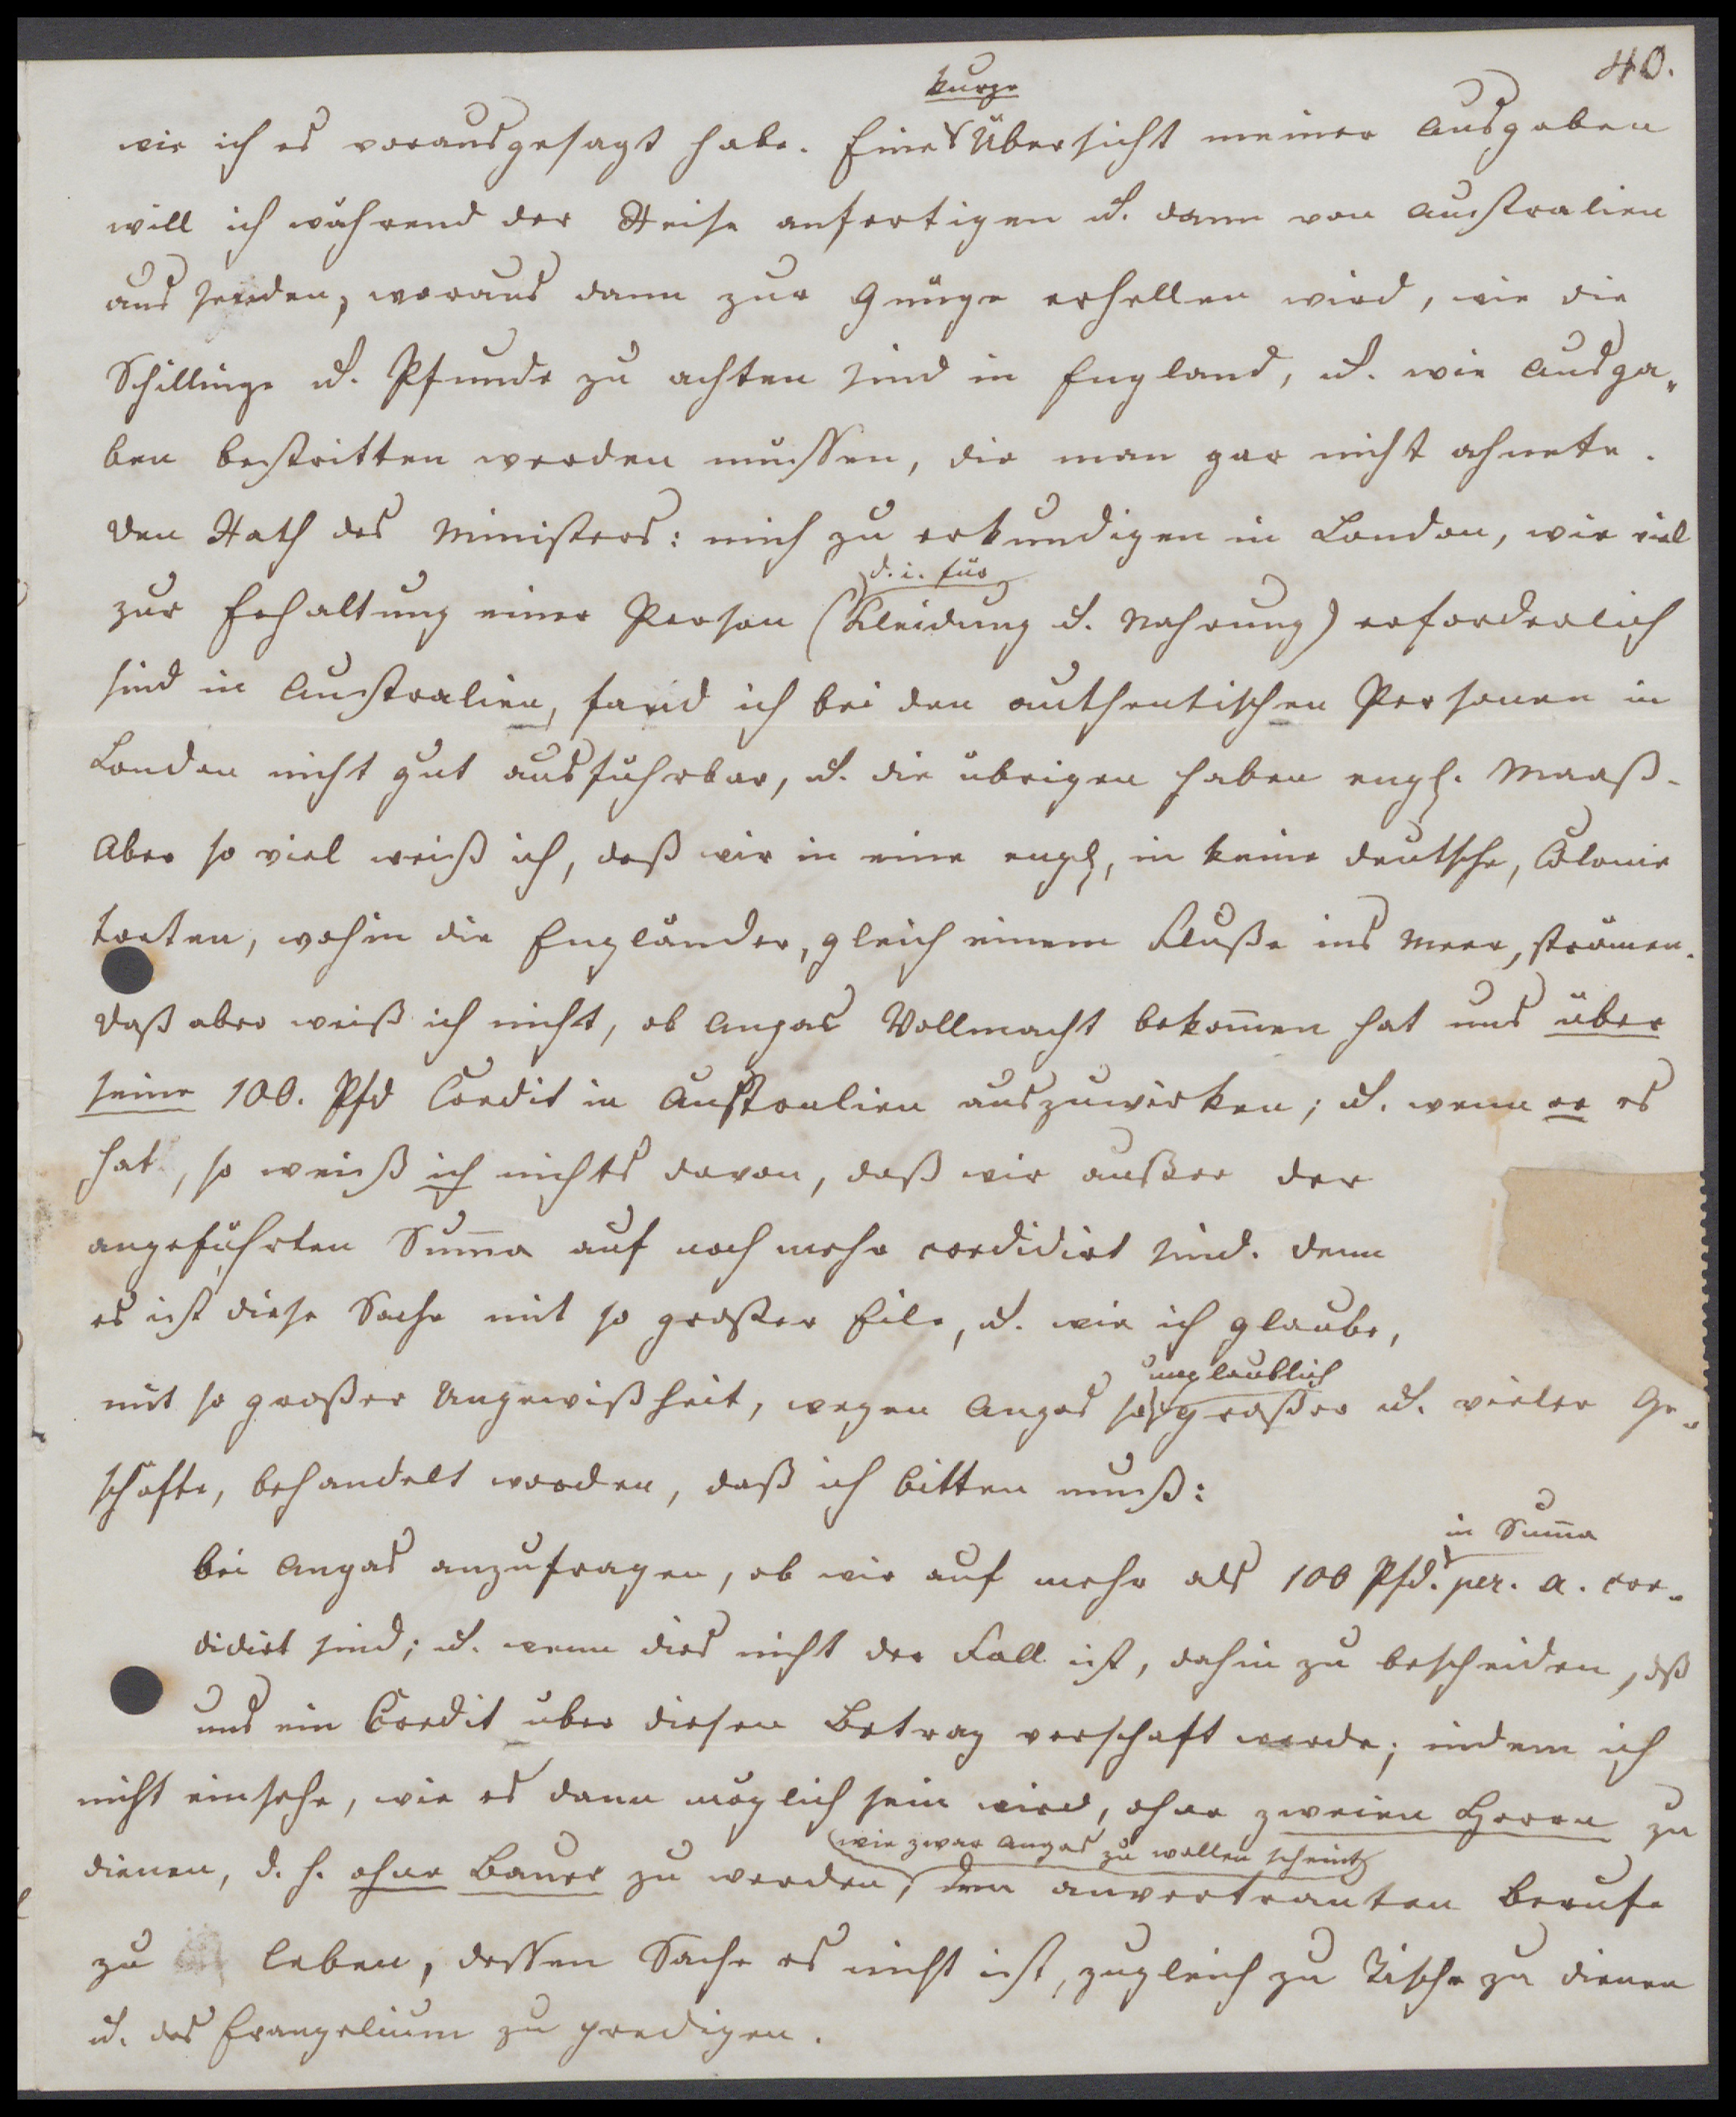 40.
kurze
wie ich es vorausgesagt habe. Eine Übersicht meiner Ausgaben
will ich während der Reise anfertigen u. dann von Australien
aus senden, woraus dann zur Genüge erhellen wird, wie die
Schillinge u. Pfunde zu achten sind in England, u. wie Ausga„
ben bestritten werden müssen, die man gar nicht ahnete.
Den Rath des Ministers: mich zu erkundigen in London, wie viel
d. i. für
zur Erhaltung einer Person (Kleidung u. Nahrung) erforderlich
sind in Australien, fand ich bei den authentischen Personen in
London nicht gut ausfuhrbar, u. die übrigen haben engl. Maaß.
Aber so viel weiß ich, daß wir in eine engl, in keine deutsche, Colonie
treten, wohin die Engländer, gleich einem Fluße ins Meer, strömen.
Daß aber weiß ich nicht, ob Angas Vollmacht bekom̄en hat uns über
seine 100. Pfd Credit in Australien auszuwirken; u. wenn er es
hat, so weiß ich nichts davon, daß wir außer der
angeführten Sum̄a auf noch mehr credidirt sind. Denn
es ist diese Sache mit so großer Eile, u. wie ich glaube,
unglaublich
mit so großer Ungewißheit, wegen Angas so großer u. vieler Ge„
schäfte, behandelt worden, daß ich bitten muß:
in Sum̄a
bei Angas anzufragen, ob wir auf mehr als 100 Pfd. per. a. cre„
didirt sind; u. wenn dies nicht der Fall ist, dahin zu bescheiden, dß
uns ein Credit über diesen Betrag verschaft werde; indem ich
nicht einsehe, wie es dann möglich sein wird, ohne zweien Herrn zu
wie zwar Angas zu wollen scheint
dienen, d. h. ohne Bauer zu werden, dem anvertrauten Berufe
zu leben, dessen Sache es nicht ist, zugleich zu Tische zu dienen
u. das Evangelium zu predigen.